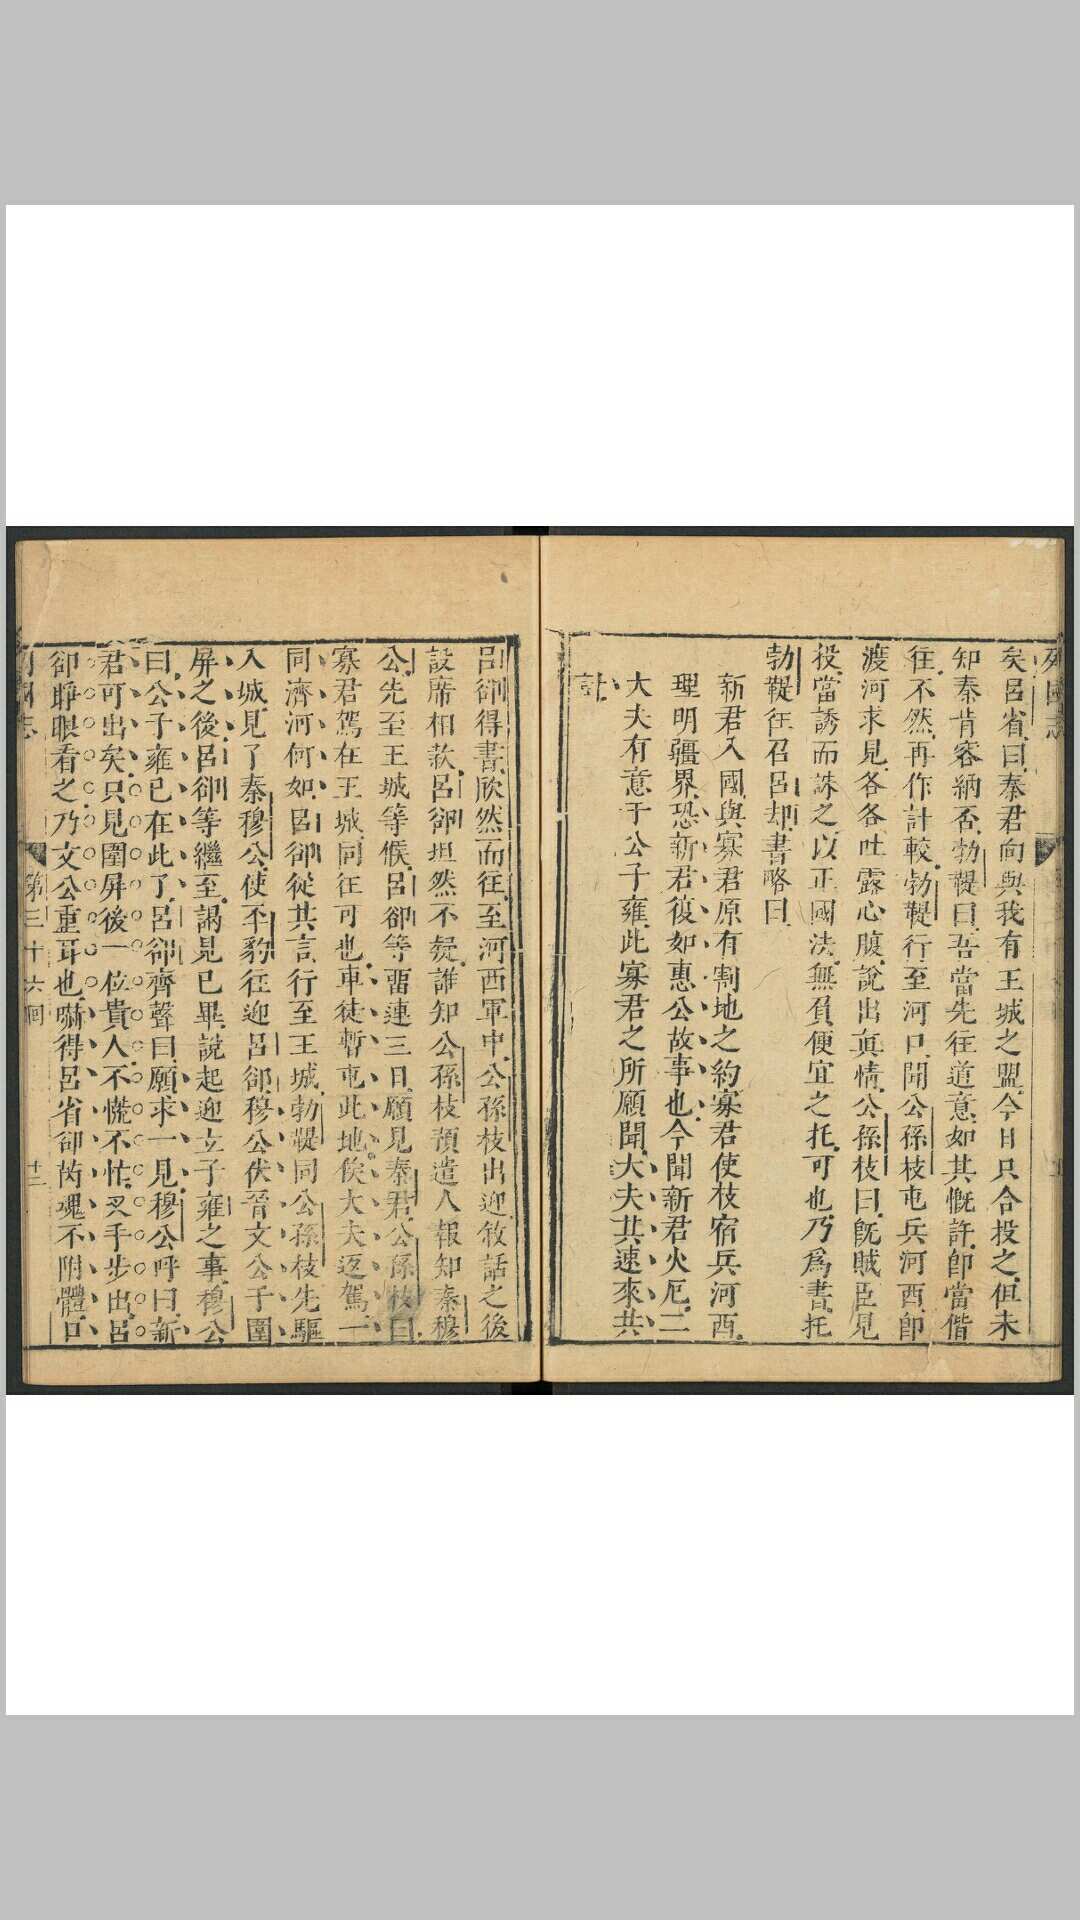 列國志
矣呂省曰秦君向與我有王城之盟今日只合投之但未
知秦肯容納否勃鞮曰吾當先往道意如其慨許卽當偕
往不然再作計較勃鞮行至河口聞公孫枝屯兵河西卽
渡河求見各各吐露心腹說出眞情公孫枝曰旣賊臣見
投當誘而誅之以正國法無負便宜之托可也乃爲書托
勃鞮往召呂却書略曰
新君入國與寡君原有割地之約寡君使枝宿兵河西
理明疆界恐新君復如惠公故事也今聞新君火厄二
大夫有意于公子雍此寡君之所願聞大夫其速來共
計
呂郤得書欣然而往至河西軍中公孫枝出迎敘話之後
設席相款呂郤坦然不疑誰知公孫枝預遣人報知秦穆
公先至王城等候呂郤等畱連三日願見秦君公孫枝曰
寡君駕在王城同往可也車徒暫屯此地俟大夫返駕一
同濟河何如呂郤從其言行至王城勃鞮同公孫枝先驅
入城見了秦穆公使丕豹往迎呂郤穆公伏晉文公于圍
屏之後呂郤等繼至謁見已畢說起迎立子雍之事穆公
曰公子雍已在此了呂郤齊聲曰願求一見穆公呼曰新
君可出矣只見圍屏後一位貴人不慌不忙叉手步出呂
郤睜眼看之乃文公重耳也嚇得呂省郤芮魂不附體口
列國志
第三十六囘
十二